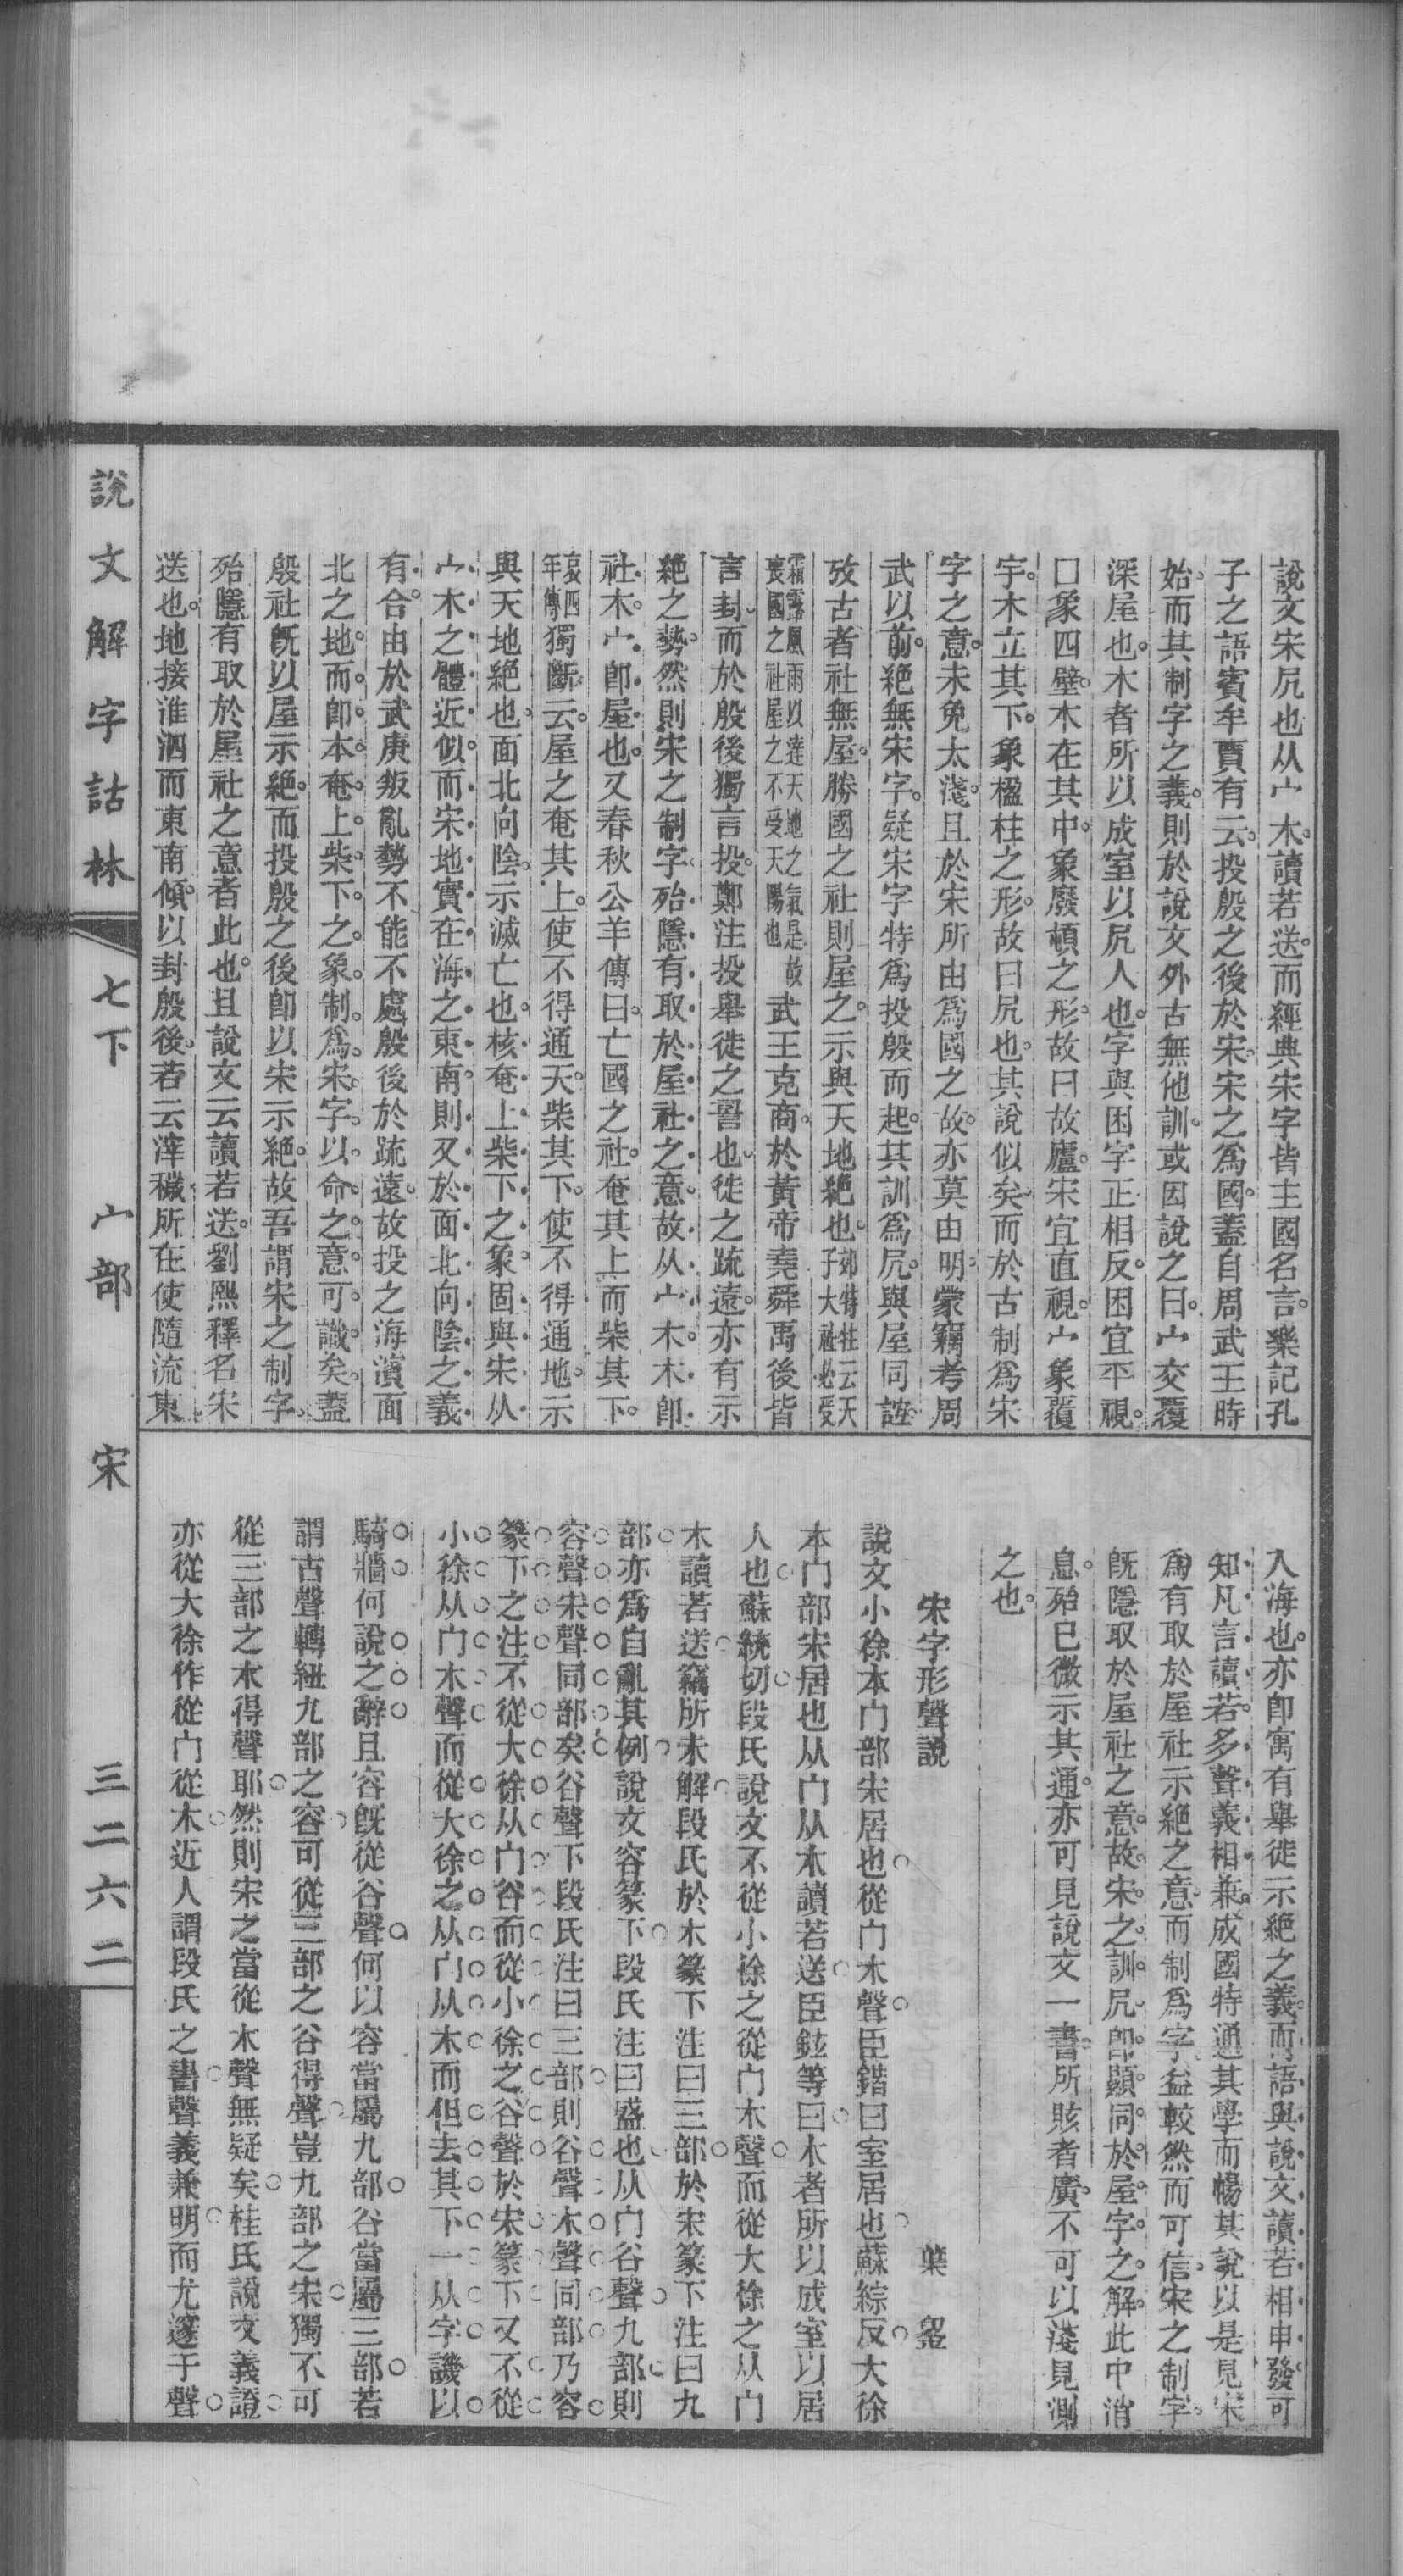 說文宋凥也从宀木讀若送而經典宋字皆主國名言樂記孔
子之語賓牟賈有云投殷之後於宋宋之爲國蓋自周武王時
始而其制字之義則於說文外古無他訓或因說之曰宀交覆
深屋也木者所以成室以凥人也字與困字正相反困宜平視
囗象四壁木在其中象廢頓之形故曰故廬宋宜直視宀象覆
宇木立其下象楹柱之形故曰凥也其說似矣而於古制爲宋
字之意未免太淺且於宋所由爲國之故亦莫由明蒙竊考周
武以前絕無宋字疑宋字特爲投殷而起其訓爲凥與屋同誼
攷古者社無屋勝國之社則屋之示與天地絕也郊特牲云天子大社必受
霜露風雨以達天地之氣是故喪國之社屋之不受天陽也武王克商於黃帝堯舜禹後皆
言封而於殷後獨言投鄭注投舉徙之詈也徙之疏遠亦有示
絕之勢然則宋之制字殆隱有取於屋社之意故从宀木木卽
社木宀卽屋也又春秋公羊傳曰亡國之社奄其上而柴其下
哀四年傳獨斷云屋之奄其上使不得通天柴其下使不得通地示
與天地絕也面北向陰示滅亡也核奄上柴下之象固與宋从
宀木之體近似而宋地實在海之東南則又於面北向陰之義
有合由於武庚叛亂勢不能不處殷後於疏遠故投之海濱面
北之地而卽本奄上柴下之象制爲宋字以命之意可識矣蓋
殷社旣以屋示絕而投殷之後卽以宋示絕故吾謂宋之制字
殆隱有取於屋社之意者此也且說文云讀若送劉熙釋名宋
送也地接淮泗而東南傾以封殷後若云滓穢所在使隨流東
入海也亦卽寓有舉徙示絕之義而語與說文讀若相申發可
知凡言讀若多聲義相兼成國特通其學而暢其說以是見宋
爲有取於屋社示絕之意而制爲字益較然而可信宋之制字
旣隱取於屋社之意故宋之訓凥卽顯同於屋字之解此中消
息殆已微示其通亦可見說文一書所賅者廣不可以淺見測
之也
宋字形聲說 葉
說文小徐本宀部宋居也從宀木聲臣鍇曰室居也蘇綜反大徐
本宀部宋居也从宀从木讀若送臣鉉等曰木者所以成室以居
人也蘇統切段氏說文不從小徐之從宀木聲而從大徐之从宀
木讀若送竊所未解段氏於木篆下注曰三部於宋篆下注曰九
部亦爲自亂其例說文容篆下段氏注曰盛也从宀谷聲九部則
容聲宋聲同部矣谷聲下段氏注曰三部則谷聲木聲同部乃容
篆下之注不從大徐从宀谷而從小徐之谷聲於宋篆下又不從
小徐从宀木聲而從大徐之从宀从木而但去其下一从字譏以
騎牆何說之辭且容旣從谷聲何以容當屬九部谷當屬三部若
謂古聲轉紐九部之容可從三部之谷得聲豈九部之宋獨不可
從三部之木得聲耶然則宋之當從木聲無疑矣桂氏說文義證
亦從大徐作從宀從木近人謂段氏之書聲義兼明而尤邃于聲
說文解字詁林 七下 宀部 宋 三二六二